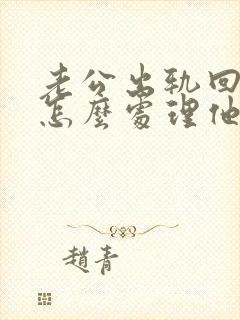 老公出轨回
怎麼處理他
趙青